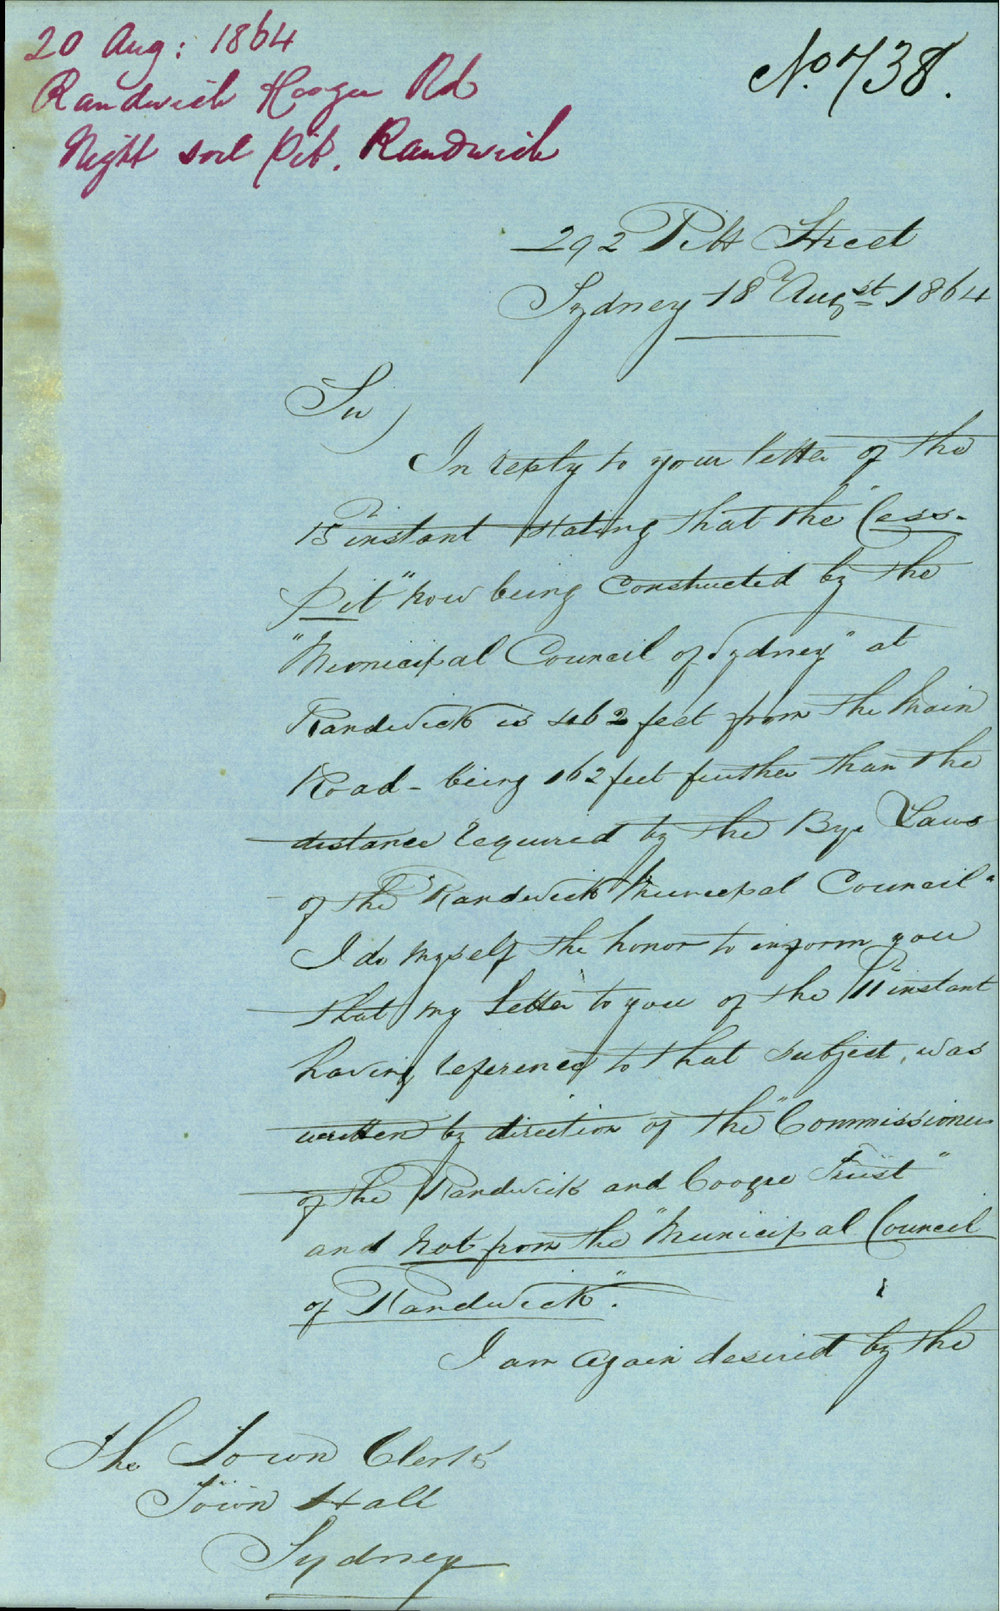 20 Aug: 1864
Randwick Coogee Rd
Night soil Pit. Randwick
No. 738.
292 Pitt Street
Sydney 18 Augst 1864
Sir
In reply to your letter of the
15 instant stating that the "Cess-
Pit" now being constructed by the
"Municipal Council of Sydney" at
Randwick is 462 feet from the Main
Road - being 162 feet further than the
distance required by the Bye Laws
of the "Randwick Municipal Council"
I do myself the honor to inform you
that my letter to you of the 11 instant
having reference to that subject, was
written by direction of the "Commissioners
of the Randwick and Coogee Trust"
and not from the "Municipal Council
of Randwick".
I am again desired by the
The Town Clerk
Town Hall
Sydney